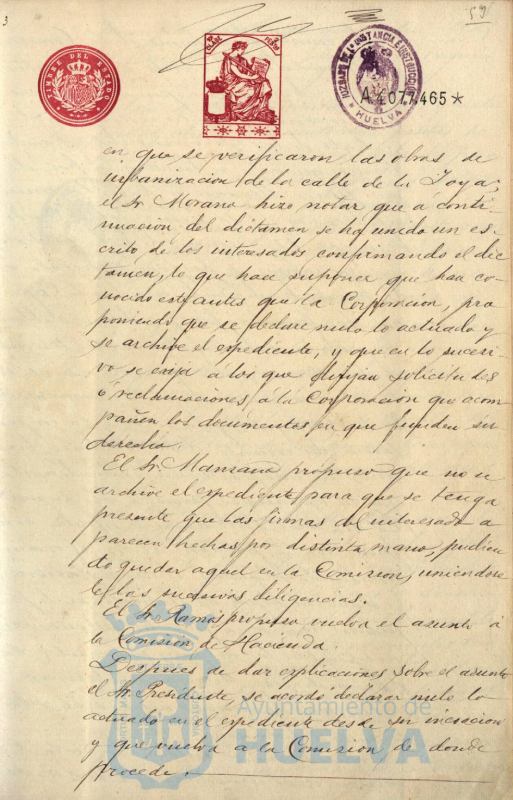 3
59
TIMBRE DEL ESTADO
JUZGADO DE 1ª INSTANCIA E INSTRUCCION
* HUELVA *
A4077465*
en que se verificaron las obras de
urbanizacion de la calle de la Joya;
el Sr. Morano hizo notar que a conti-
nuacion del dictamen se ha unido un es-
crito de los interesados confirmando el dic
tamen, lo que hace suponer que han co-
nocido este antes que la Corporacion, pro
poniendo que se declare nulo lo actuado y
se archive el expediente, y que en lo sucesi-
vo se exija a los que dirijan solicitudes
ó reclamaciones a la Corporacion que acom
pañen los documentos en que funden su
derecho.
El Sr. Manzano propuso que no se
archive el expediente para que se tenga
presente que las firmas del interesado a
parecen hechas por distinta mano, pudien
do quedar aquel en la Comision, uniendose
le las sucesivas diligencias.
El Sr. Ramos propuso vuelva el asunto á
la Comision de Hacienda.
Despues de dar explicaciones sobre el asunto
el Sr. Presidente, se acordó declarar nulo lo
actuado en el expediente desde su iniciacion
y que vuelva a la Comision de donde
procede.
Ayuntamiento de
HUELVA